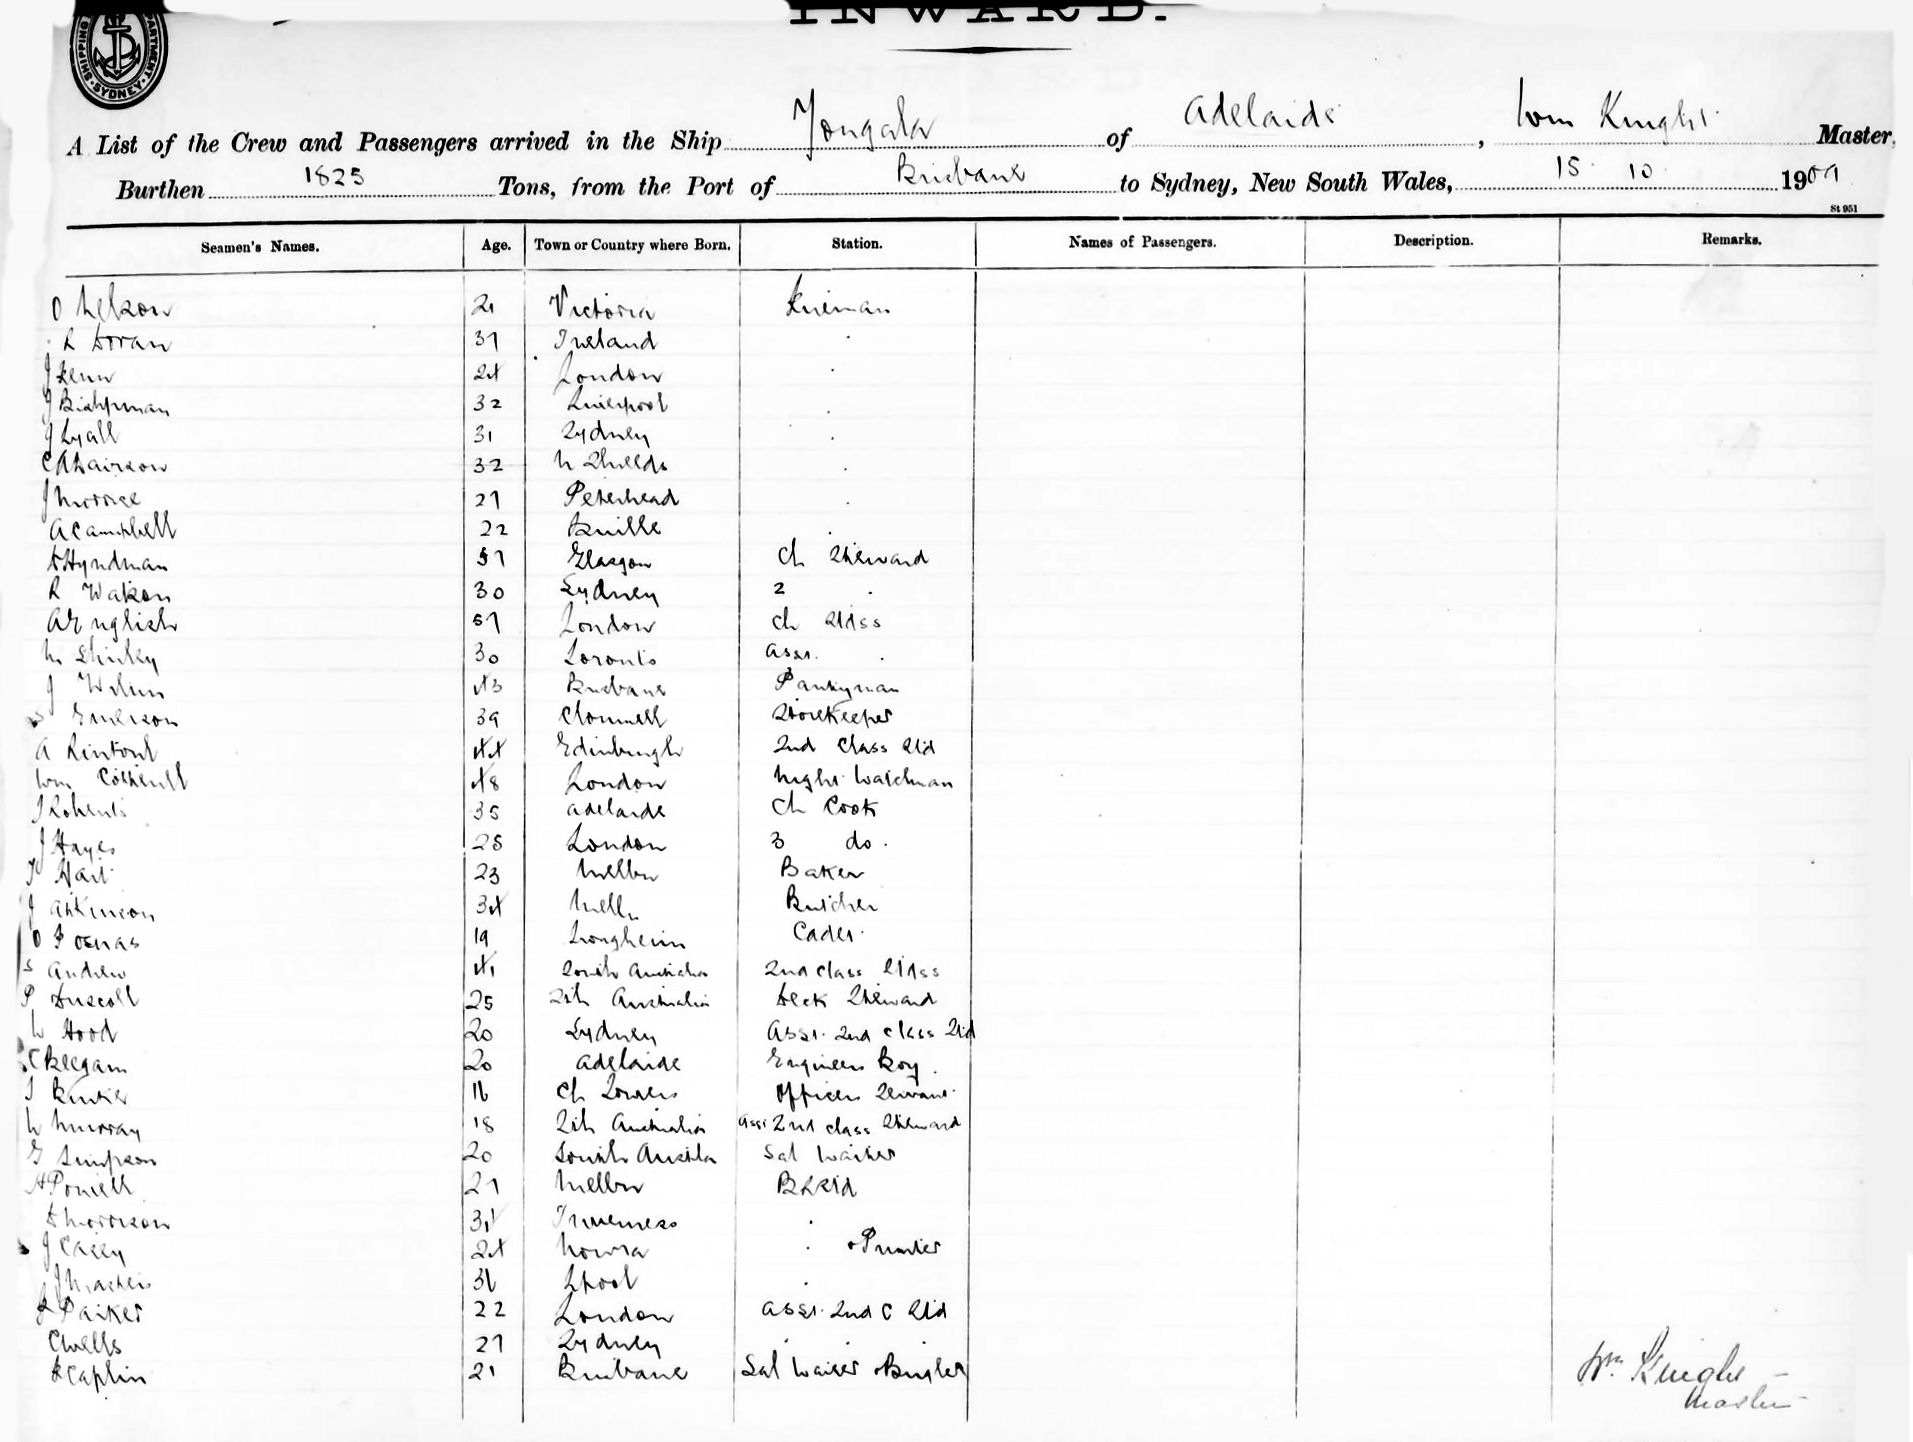 INWARD.
SHIPPING DEPARTMENT SYDNEY
A List of the Crew and Passengers arrived in the Ship Yongala of Adelaide, Wm Knight Master,
Burthen 1825 Tons, from the Port of Brisbane to Sydney, New South Wales, 15 10 1909
St 951
Seamen's Names. Age. Town or Country where Born. Station. Names of Passengers. Description. Remarks.
O Nelson 21 Victoria Fireman
R Doran 37 Ireland
J Fenn 24 London
J 32 Liverpool
J Lyall 31 Sydney
32 N Shields
J 27 Peterhead
A Campbell 22
D Hyndman 57 Glasgow Ch Steward
R Watson 30 Sydney 2
A English 57 London Ch Stdss
M Shirley 30 Toronto Asst.
J 43 Brisbane Pantryman
S Emerson 39 Clonmell Storekeeper
A Rintoul 44 Edinburgh 2nd Class Std
Wm 48 London Night Watchman
J Roberts 35 Adelaide Ch Cook
J Hayes 25 London 3 do.
Hart 23 Melbn Baker
J Atkinson 34 Melbn Butcher
O 19 Cadet
S Andrew 41 South Australia 2nd class Stdss
P Driscoll 25 Sth Australia Deck Steward
W Hood 20 Sydney Asst. 2nd class Std
C Keegan 20 Adelaide Engineers Boy
16 Ch Towers Officers Servant
W Murray 18 Sth Australia Asst 2nd class Steward
G Simpson 20 South Austrla Sal Waiter
H Powell 27 Melbn B R Std
D Morrison 34 Inverness
J Casey 24 Nowra + Printer
J Masters 36 Lpool
F Parker 22 London Asst. 2nd C Std
C Wells 27 Sydney
F Caplin 21 Brisbane Sal Waiter + Bugler
Wm Knight
Master